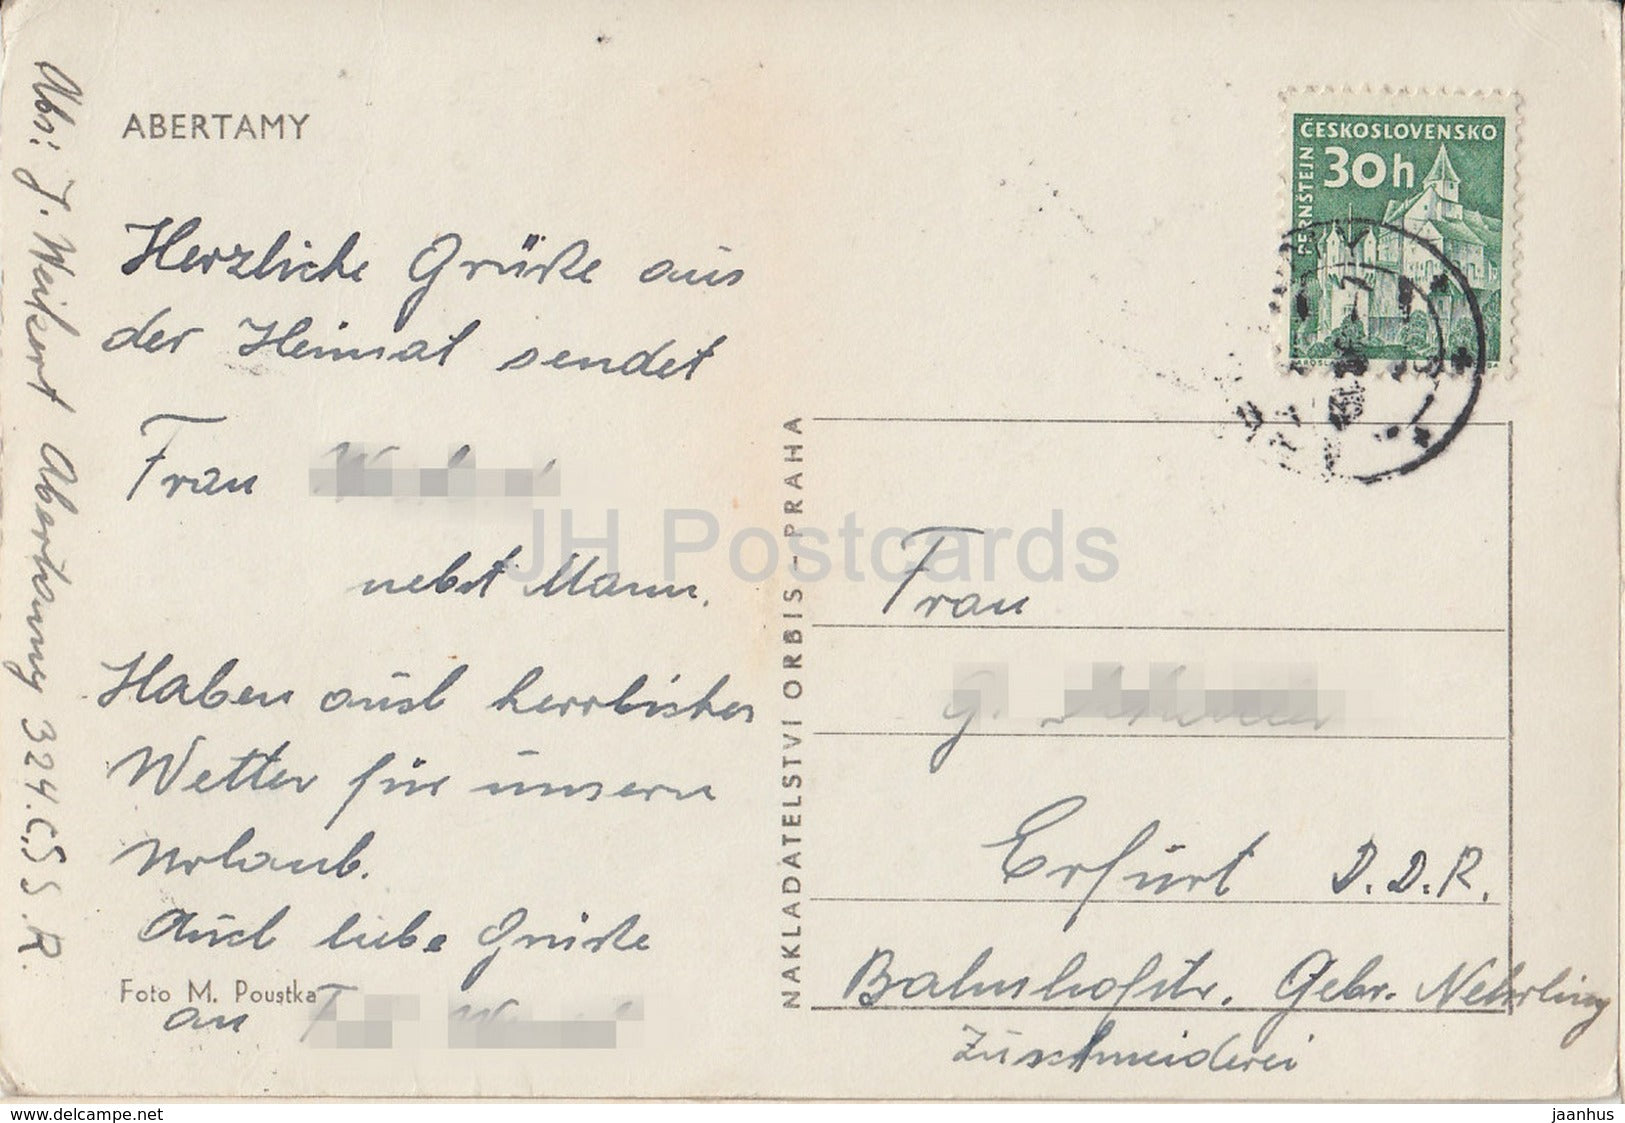 ABERTAMY
Abs: J. Weikert Abertamy 324. C.S.S.R.
Herzliche Grüße aus
der Heimat sendet
Frau
nebst Mann.
Haben auch herrliches
Wetter für unsern
Urlaub.
Auch liebe Grüße
Foto M. Poustka
an
NAKLADATELSTVÍ ORBIS - PRAHA
ČESKOSLOVENSKO
30h
PERNŠTEJN
Frau
G.
Erfurt D.D.R.
Bahnhofstr. Gebr. Nehrling
Zuschneiderei
JH Postcards
www.delcampe.net
jaanhus